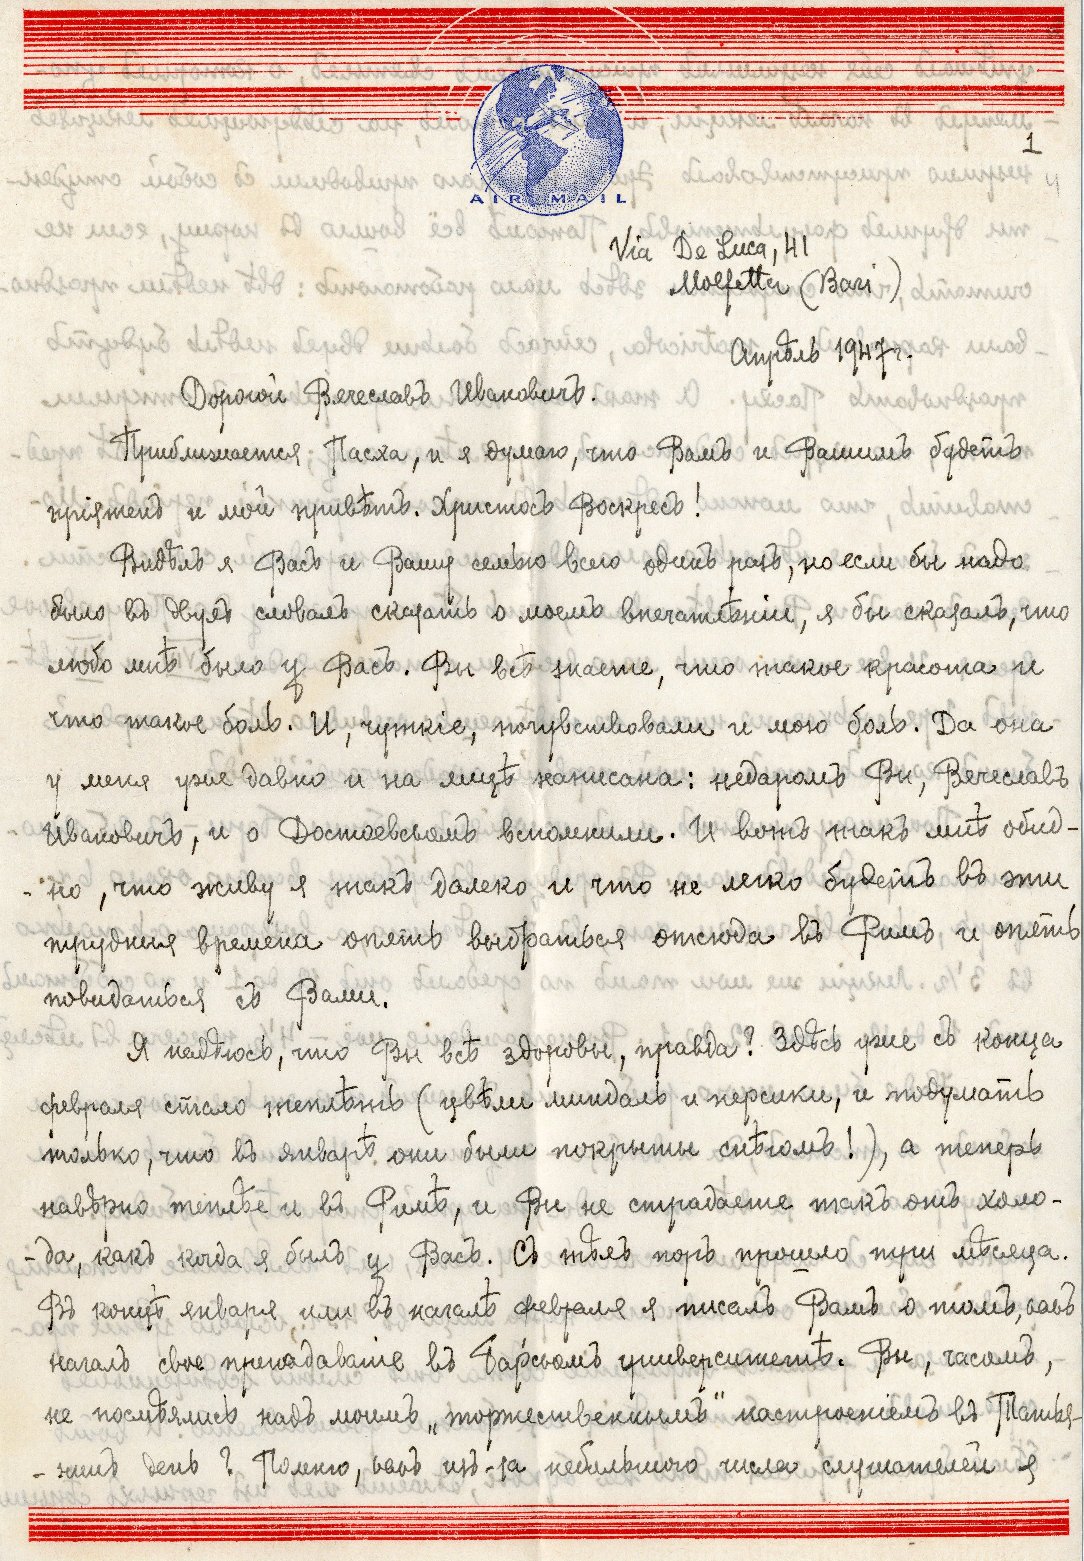 1
AIR MAIL
Via De Luca, 41
Molfetta (Bari)
Апрѣль 1947 г.
Дорогой Вячеславъ Ивановичъ.
Приближается Пасха, и я думаю, что Вамъ и Вашимъ будетъ
пріятенъ и мой привѣтъ. Христосъ Воскресъ!
Видѣлъ я Васъ и Вашу семью всего одинъ разъ, но если бы надо
было въ двухъ словахъ сказать о моемъ впечатлѣніи, я бы сказалъ, что
любо мнѣ было у Васъ. Вы всѣ знаете, что такое красота и
что такое боль. И, чуткіе, почувствовали и мою боль. Да она
у меня уже давно и на лицѣ написана: недаромъ Вы, Вячеславъ
Ивановичъ, и о Достоевскомъ вспомнили. И вотъ такъ мнѣ обид-
-но, что живу я такъ далеко и что не легко будетъ въ эти
трудныя времена опять выбраться отсюда въ Римъ и опять
повидаться съ Вами.
Я надѣюсь, что Вы всѣ здоровы, правда? Здѣсь уже съ конца
февраля стало теплѣть (цвѣли миндаль и персики, и подумать
только, что въ январѣ они были покрыты снѣгомъ!), а теперь
навѣрно теплѣе и въ Римѣ, и Вы не страдаете такъ отъ холо-
-да, какъ когда я былъ у Васъ. Съ тѣхъ поръ прошло три мѣсяца.
Въ концѣ января или въ началѣ февраля я писалъ Вамъ о томъ, какъ
началъ свое преподаваніе въ Барскомъ университетѣ. Вы, часомъ,
не посмѣялись надъ моимъ „торжественнымъ" настроеніемъ въ Татья-
-нинъ день? Помню, какъ изъ-за небольшого числа слушателей я